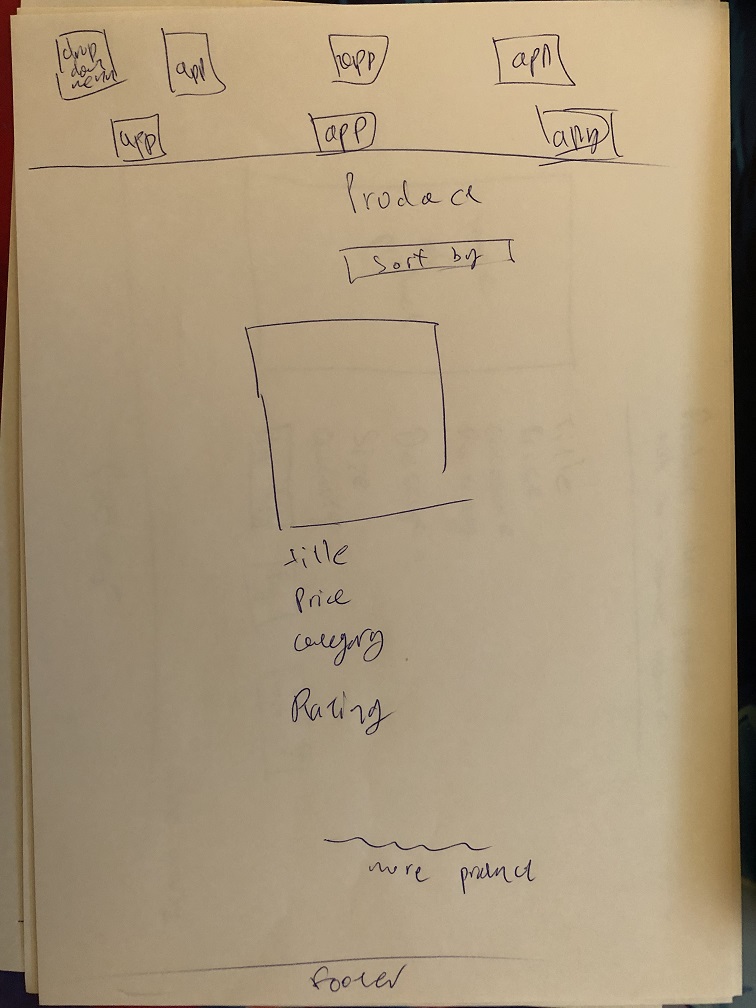 drop down menu
app
app
app
app
app
app
Product
Sort by
title
Price
category
Rating
more product
footer